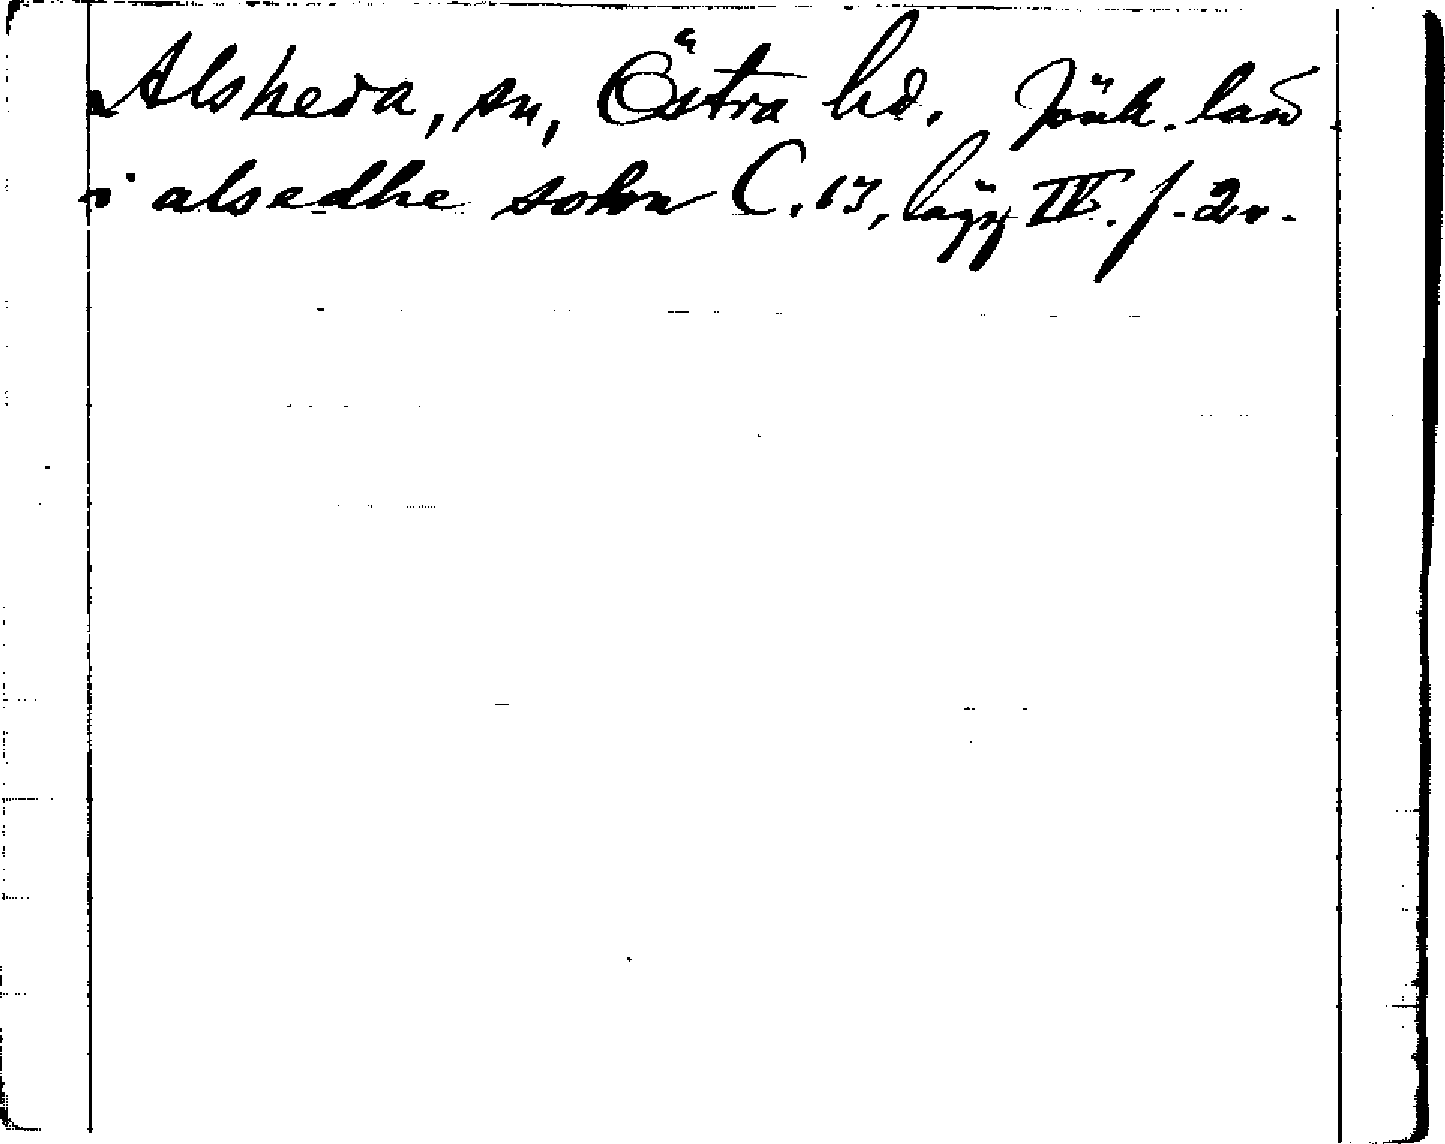 Alsheda, sn, Östra hd. Jönk. län
i alsedhe sokn C. 13, lägg IV. f. 2v.